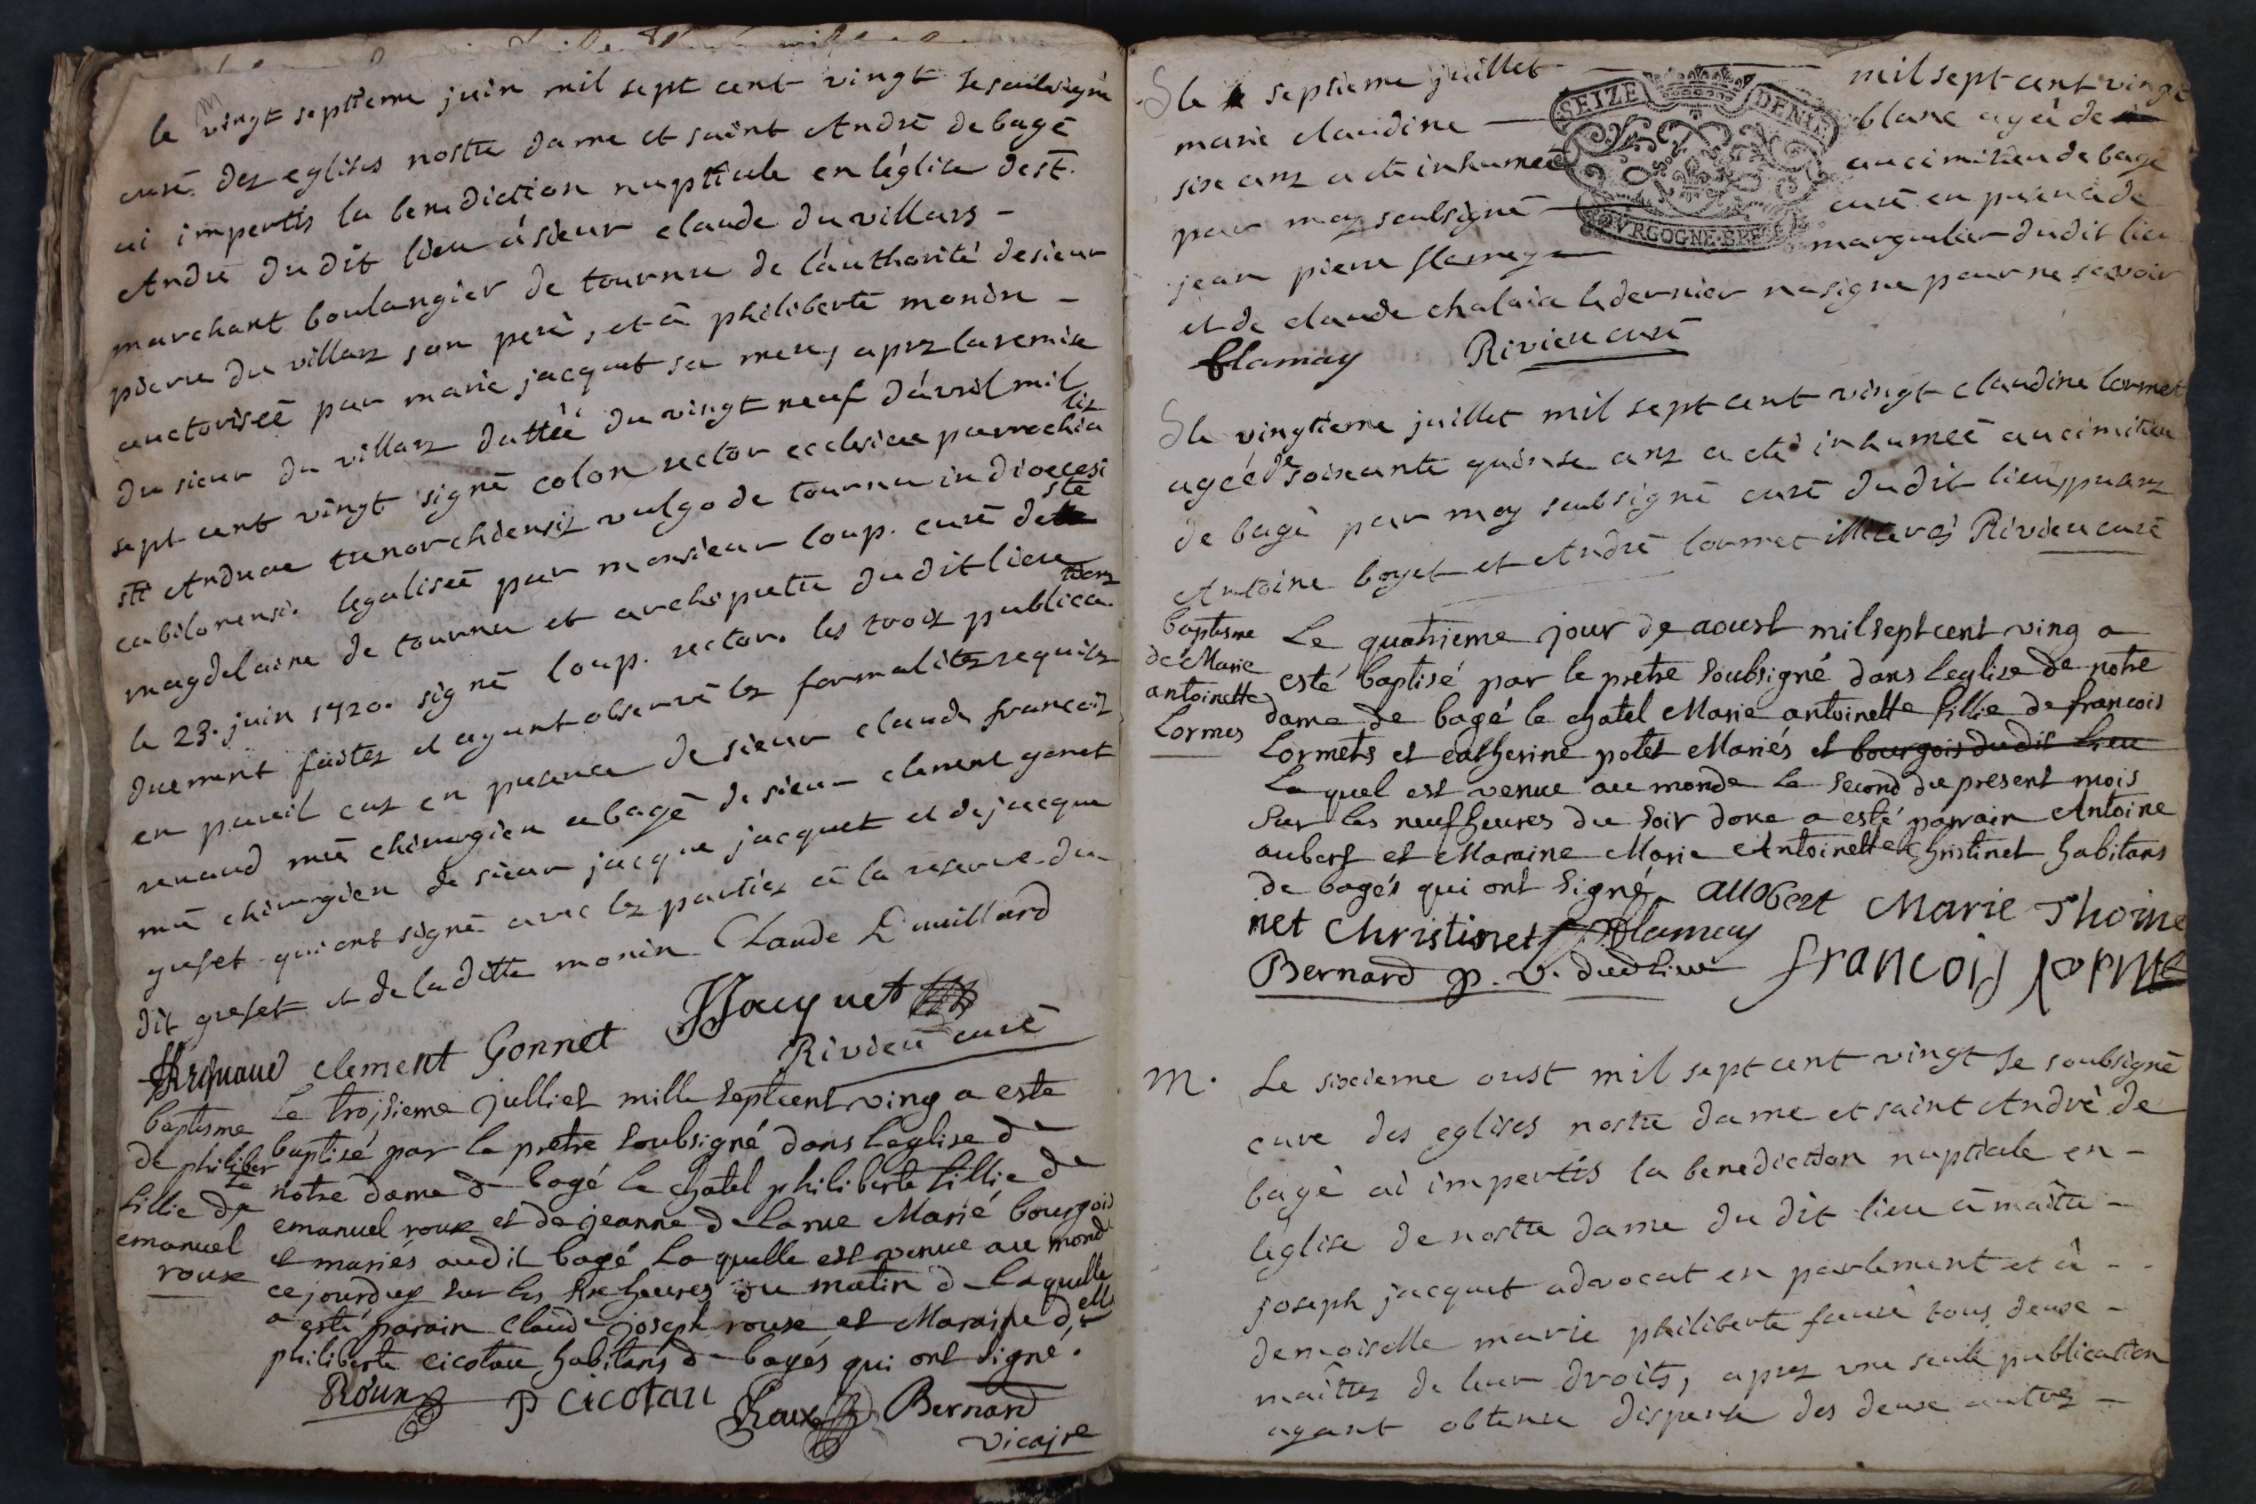 M
le vingt septieme juin mil sept cent vingt Je soubsigné
curé des eglises nostre dame et saint André de bagé
ai impertis la benediction nuptiale en léglise de st.
André du dit lieu á sieur claude du villars -
marchant boulangier de tournu de láuthorité de sieur
pierre du villars son peré, et á philiberte monin -
auctoriseé par marie jacquet sa mere, aprez la remise
du sieur du villarz dattéé du vingt neuf dávril mil
sept cent vingt signé colon rector ecclesiae parrochialis
sti Andreae trenorchiensis vulgo de tournu in dioecesi
cabilonensi. legaliseé par monsieur loup. curé de ste
magdelaine de tournu et archipretre du dit lieu
le 23. juin 1720. signé loup. rector. les trois publications
duement faites et ayant observé les formalitez requises
en pareil cas en presence de sieur claude françois
renaud mtre chirurgien a bagé de sieur clement gonet
mtre chirurgien de sieur jacque jacquet et de jacque
greset qui ont signé avec les parties á la reserve du
dit greset et de la ditte monin Claude Duuillard
Renaud clement Gonnet JJacquet
Rivieu curé
baptisme de philiberte fillie de emanuel roux
Le troisieme julliet mille septcent ving a este
baptisé par le pretre soubsigné dans leglise de
notre dame de bagé le chatel philiberte fillie de
emanuel roux et de jeanne de larue Marié bourgois
et mariés audit bagé laquelle est venue au monde
ce jourduy sur les six heures du matin de laquelle
a esté parain claude joseph roux et Maraine delle
philiberte cicotau habitans de bagés qui ont signé.
Roux P Cicotau Roux Bernard
vicaire
le septieme juillet mil sept cent vingt
marie claudine blanc agéé de
six ans a été inhumeé au cimitieu de bagé
par moy soubsigné curé en presence de
jean pierre flamey marguilier du dit lieu
et de claude chalaia le dernier na signe pour ne scavoir
flamay Rivieu curé
SEIZE DENIE
BOVRGOGNE BRESSE
le vingtieme juillet mil sept cent vingt claudine lormet
agéé de soixante quinse ans a eté inhumeé au cimitieu
de bagé par moy soubsigné curé du dit lieu, presens
Antoine boyet et André lormet illiteres Rivieu curé
baptisme de Marie antoinette Lormes
Le quatrieme jour de aoust mil sept cent ving a
esté baptisé par le pretre soubsigné dans leglise de notre
dame de bagé le chatel Marie antoinette fillie de francois
Lormets et catherine potet Mariés et bourgois dudit lieu
Laquel est venue au monde le second du present mois
sur les neuf heures du soir donc a esté parrain Antoine
aubert et Maraine Marie Antoinette christinet habitans
de bagés qui ont signé. allobert Marie Thoine
net christinet Flamay
Bernard p. v. dud lieu francois lormet
M. Le sixieme oust mil sept cent vingt Je soubsigné
cure des eglises nostre dame et saint André de
bagé ai impertis la benediction nuptiale en -
léglise de nostre dame du dit lieu á maitre -
joseph jacquet advocat en parlement et á - -
demoiselle marie philiberte favre tous deux -
maîtres de leur droits, aprez une seule publication
ayant obtenu dispense des deux autres -